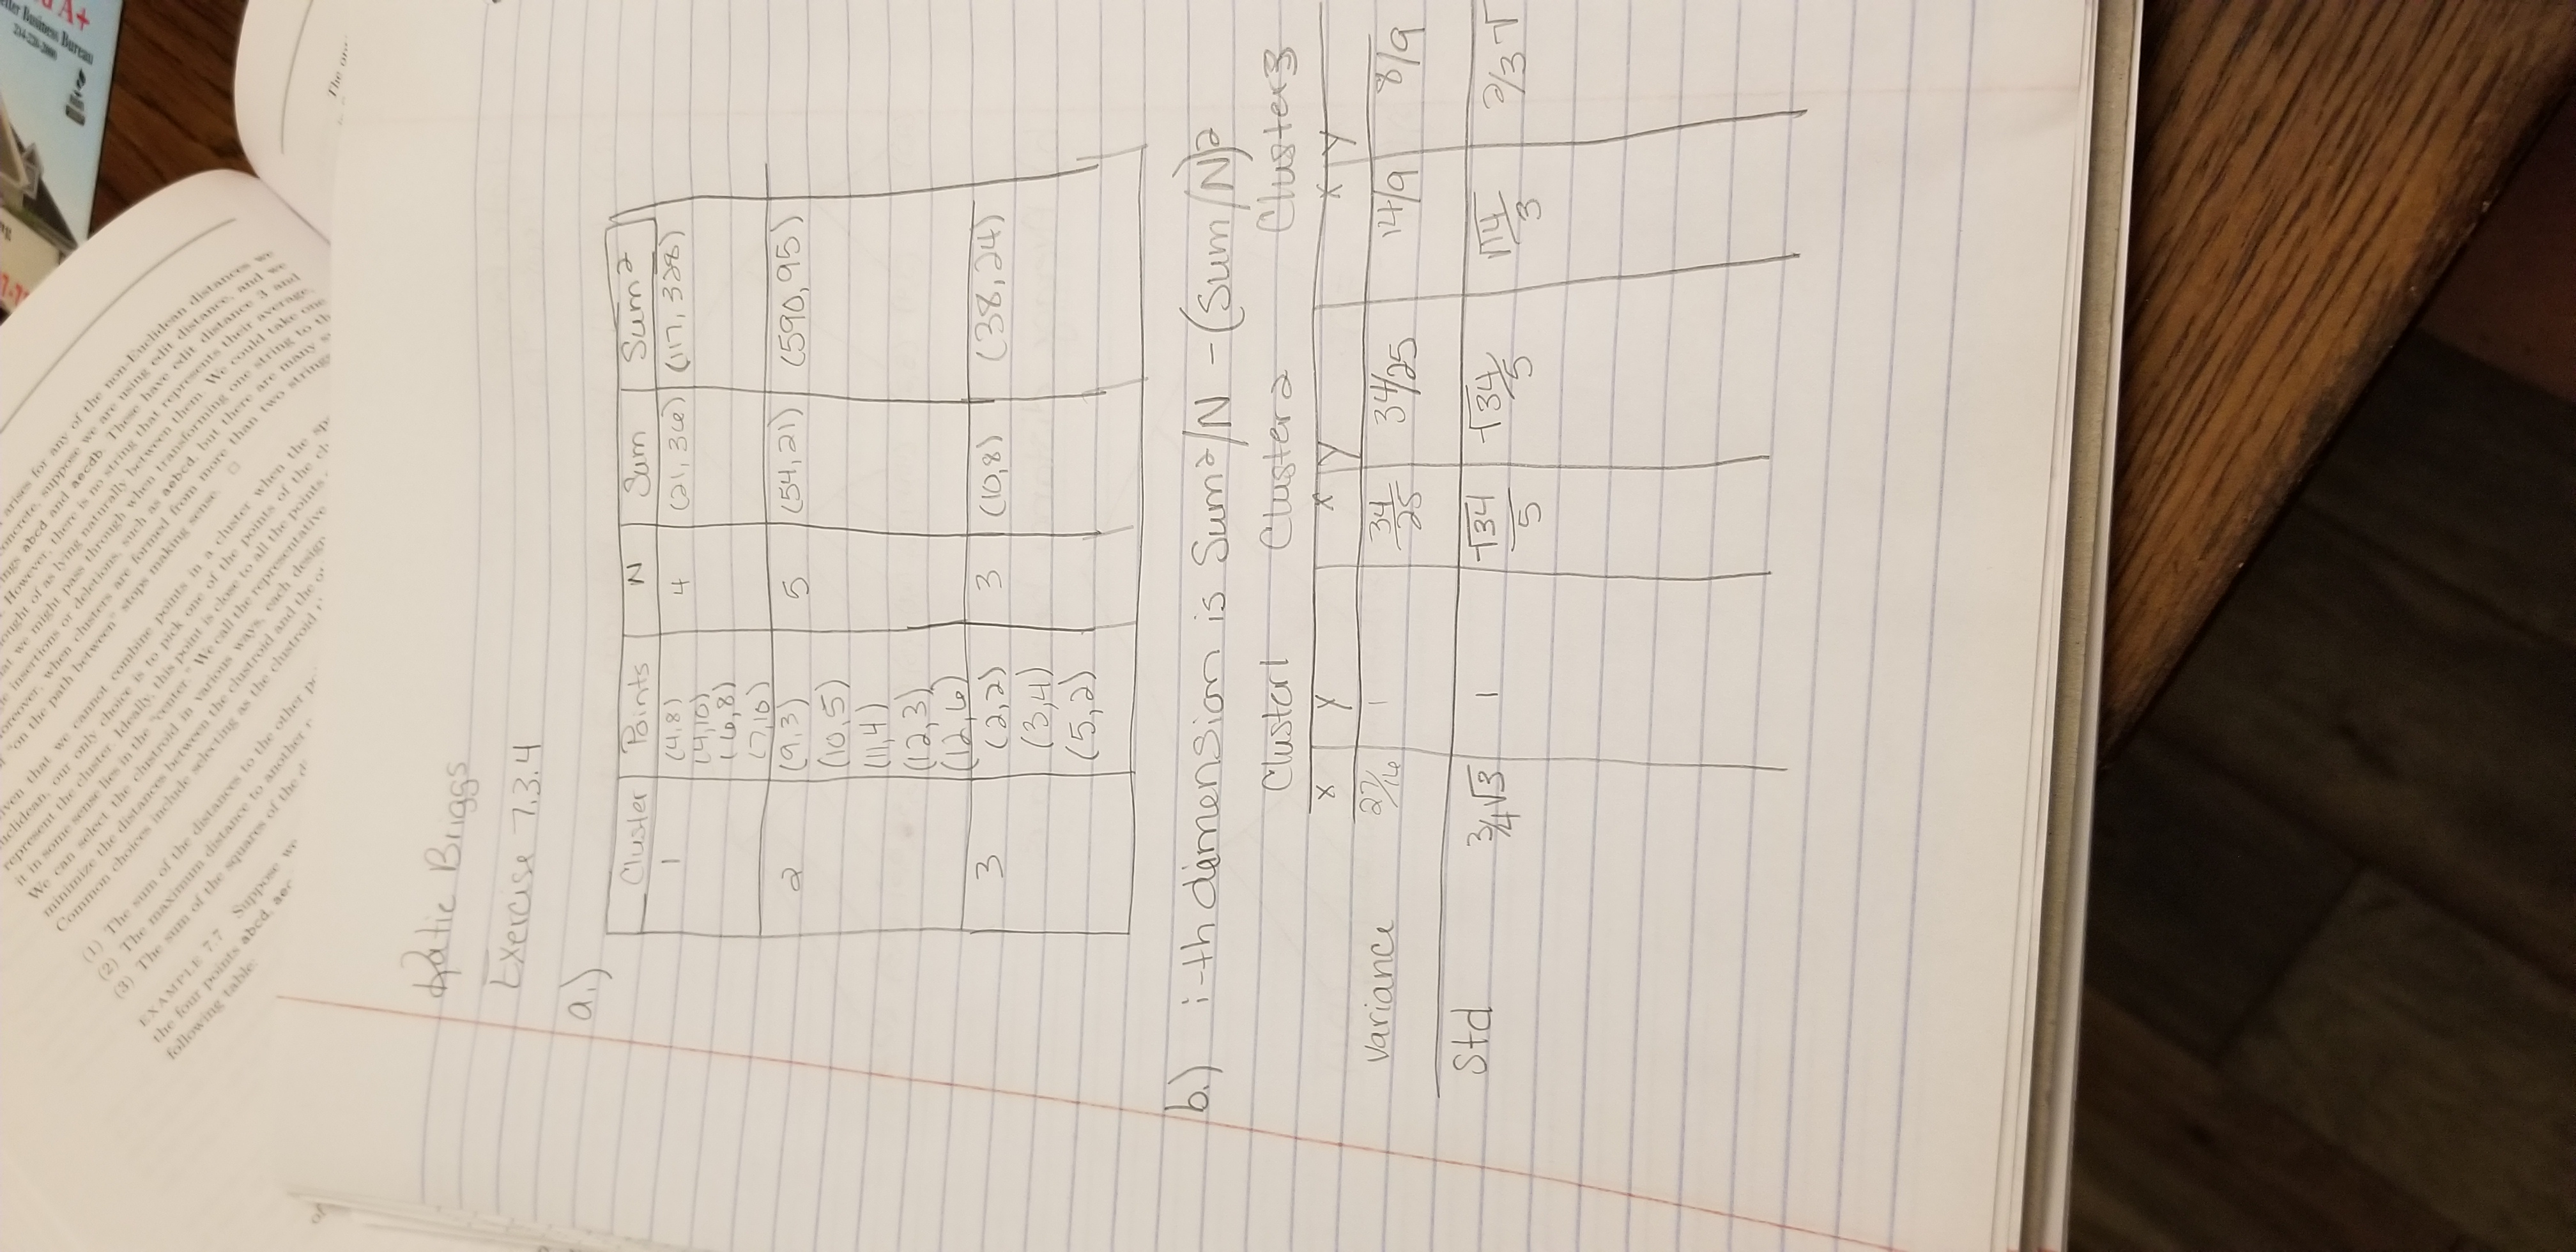 arises for any of the non-Euclidean distances
concrete, suppose we are using edit distance, and we
abcd and aecdb. These have edit distance 3 and
However, there is no string that represents their average,
thought of as lying naturally between them. We could take one
that we might pass through when transforming one string to
insertions or deletions, such as aebcd, but there are many
Moreover, when clusters are formed from more than two strings
"on the path between" stops making sense. □
that we cannot combine points in a cluster when the
Euclidean, our only choice is to pick one of the points of the
represent the cluster. Ideally, this point is close to all the points
it in some sense lies in the "center." We call the representative
We can select the clustroid in various ways, each
minimize the distances between the clustroid and the
Common choices include selecting as the clustroid
(1) The sum of the distances to the other
(2) The maximum distance to another
(3) The sum of the squares of the
EXAMPLE 7.7 Suppose we
the four points abcd,
following table:
A+
Business Bureau
The
Katie Briggs
Exercise 7.3.4
a.)
Cluster Points N Sum Sum²
1 (4,8) 4 (21,36) (117,328)
(4,10)
(6,8)
(7,10)
2 (9,3) 5 (54,21) (590,95)
(10,5)
(11,4)
(12,3)
(12,6)
3 (2,2) 3 (10,8) (38,24)
(3,4)
(5,2)
b.) i-th dimension is Sum²/N - (Sum/N)²
Cluster1 Cluster2 Cluster3
x y x y x y
variance 27/16 1 34/25 34/25 14/9 8/9
Std 3/4√3 1 √34/5 √34/5 √14/3 2/3√